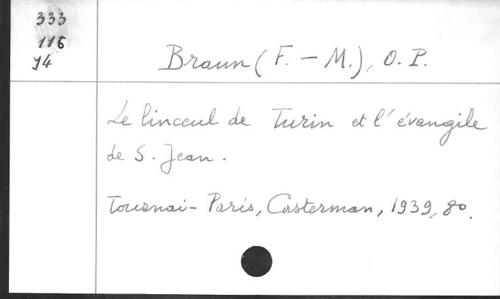 333
116
74
Braun (F. - M.), O. P.
Le linceul de Turin et l'évangile
de S. Jean.
Tournai - Paris, Casterman, 1939, 8º.